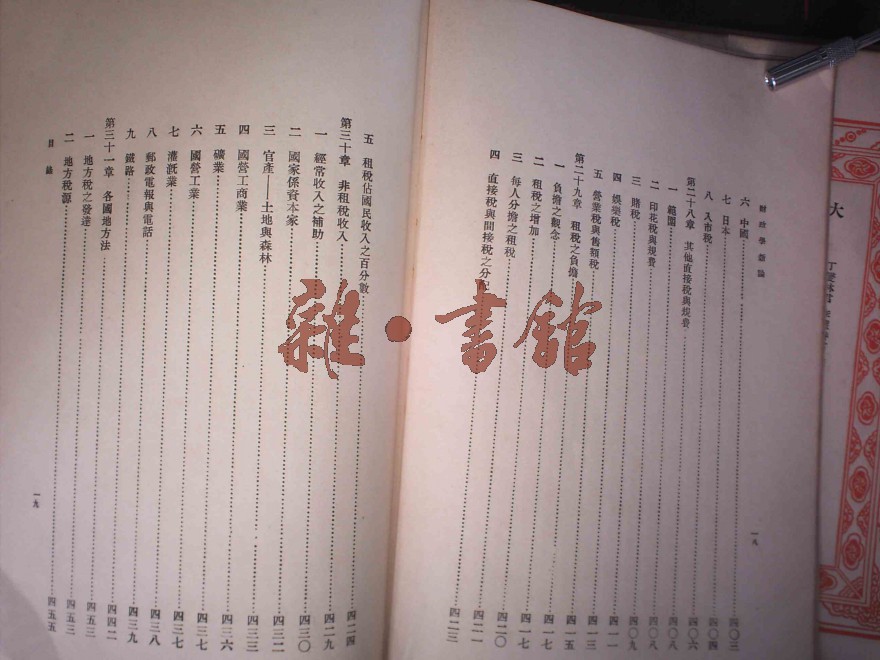 財政學新論
六 中國 四〇三
七 日本 四〇四
八 入市稅 四〇六
第二十八章 其他直接稅與規費 四〇八
一 範圍 四〇八
二 印花稅與規費 四〇八
三 賭稅 四〇九
四 娛樂稅 四一一
五 營業稅與舊額稅 四一三
第二十九章 租稅之負擔 四一五
一 負擔之觀念 四一七
二 租稅之增加 四一七
三 每人分擔之租稅 四二〇
四 直接稅與間接稅之分配 四二三
一八
五 租稅佔國民收入之百分數 四二四
第三十章 非租稅收入 四二九
一 經常收入之補助 四二九
二 國家係資本家 四三〇
三 官產——土地與森林 四三二
四 國營工商業 四三三
五 礦業 四三六
六 國營工業 四三七
七 灌漑業 四三七
八 郵政電報與電話 四三八
九 鐵路 四三九
第三十一章 各國地方法 四四二
一 地方稅之發達 四五三
二 地方稅源 四五五
目錄
一九
大
雜·書館